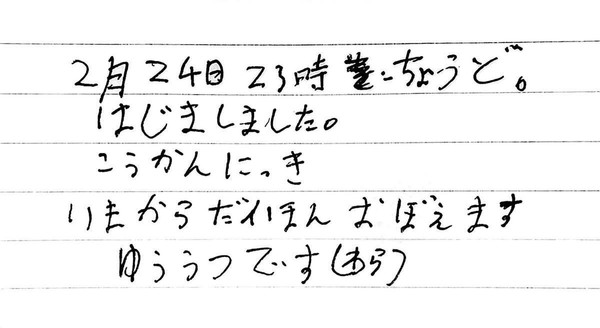 2月24日23時ちょうど。
はじましました。
こうかんにっき
いまからだいほんおぼえます
ゆううつです(わら)